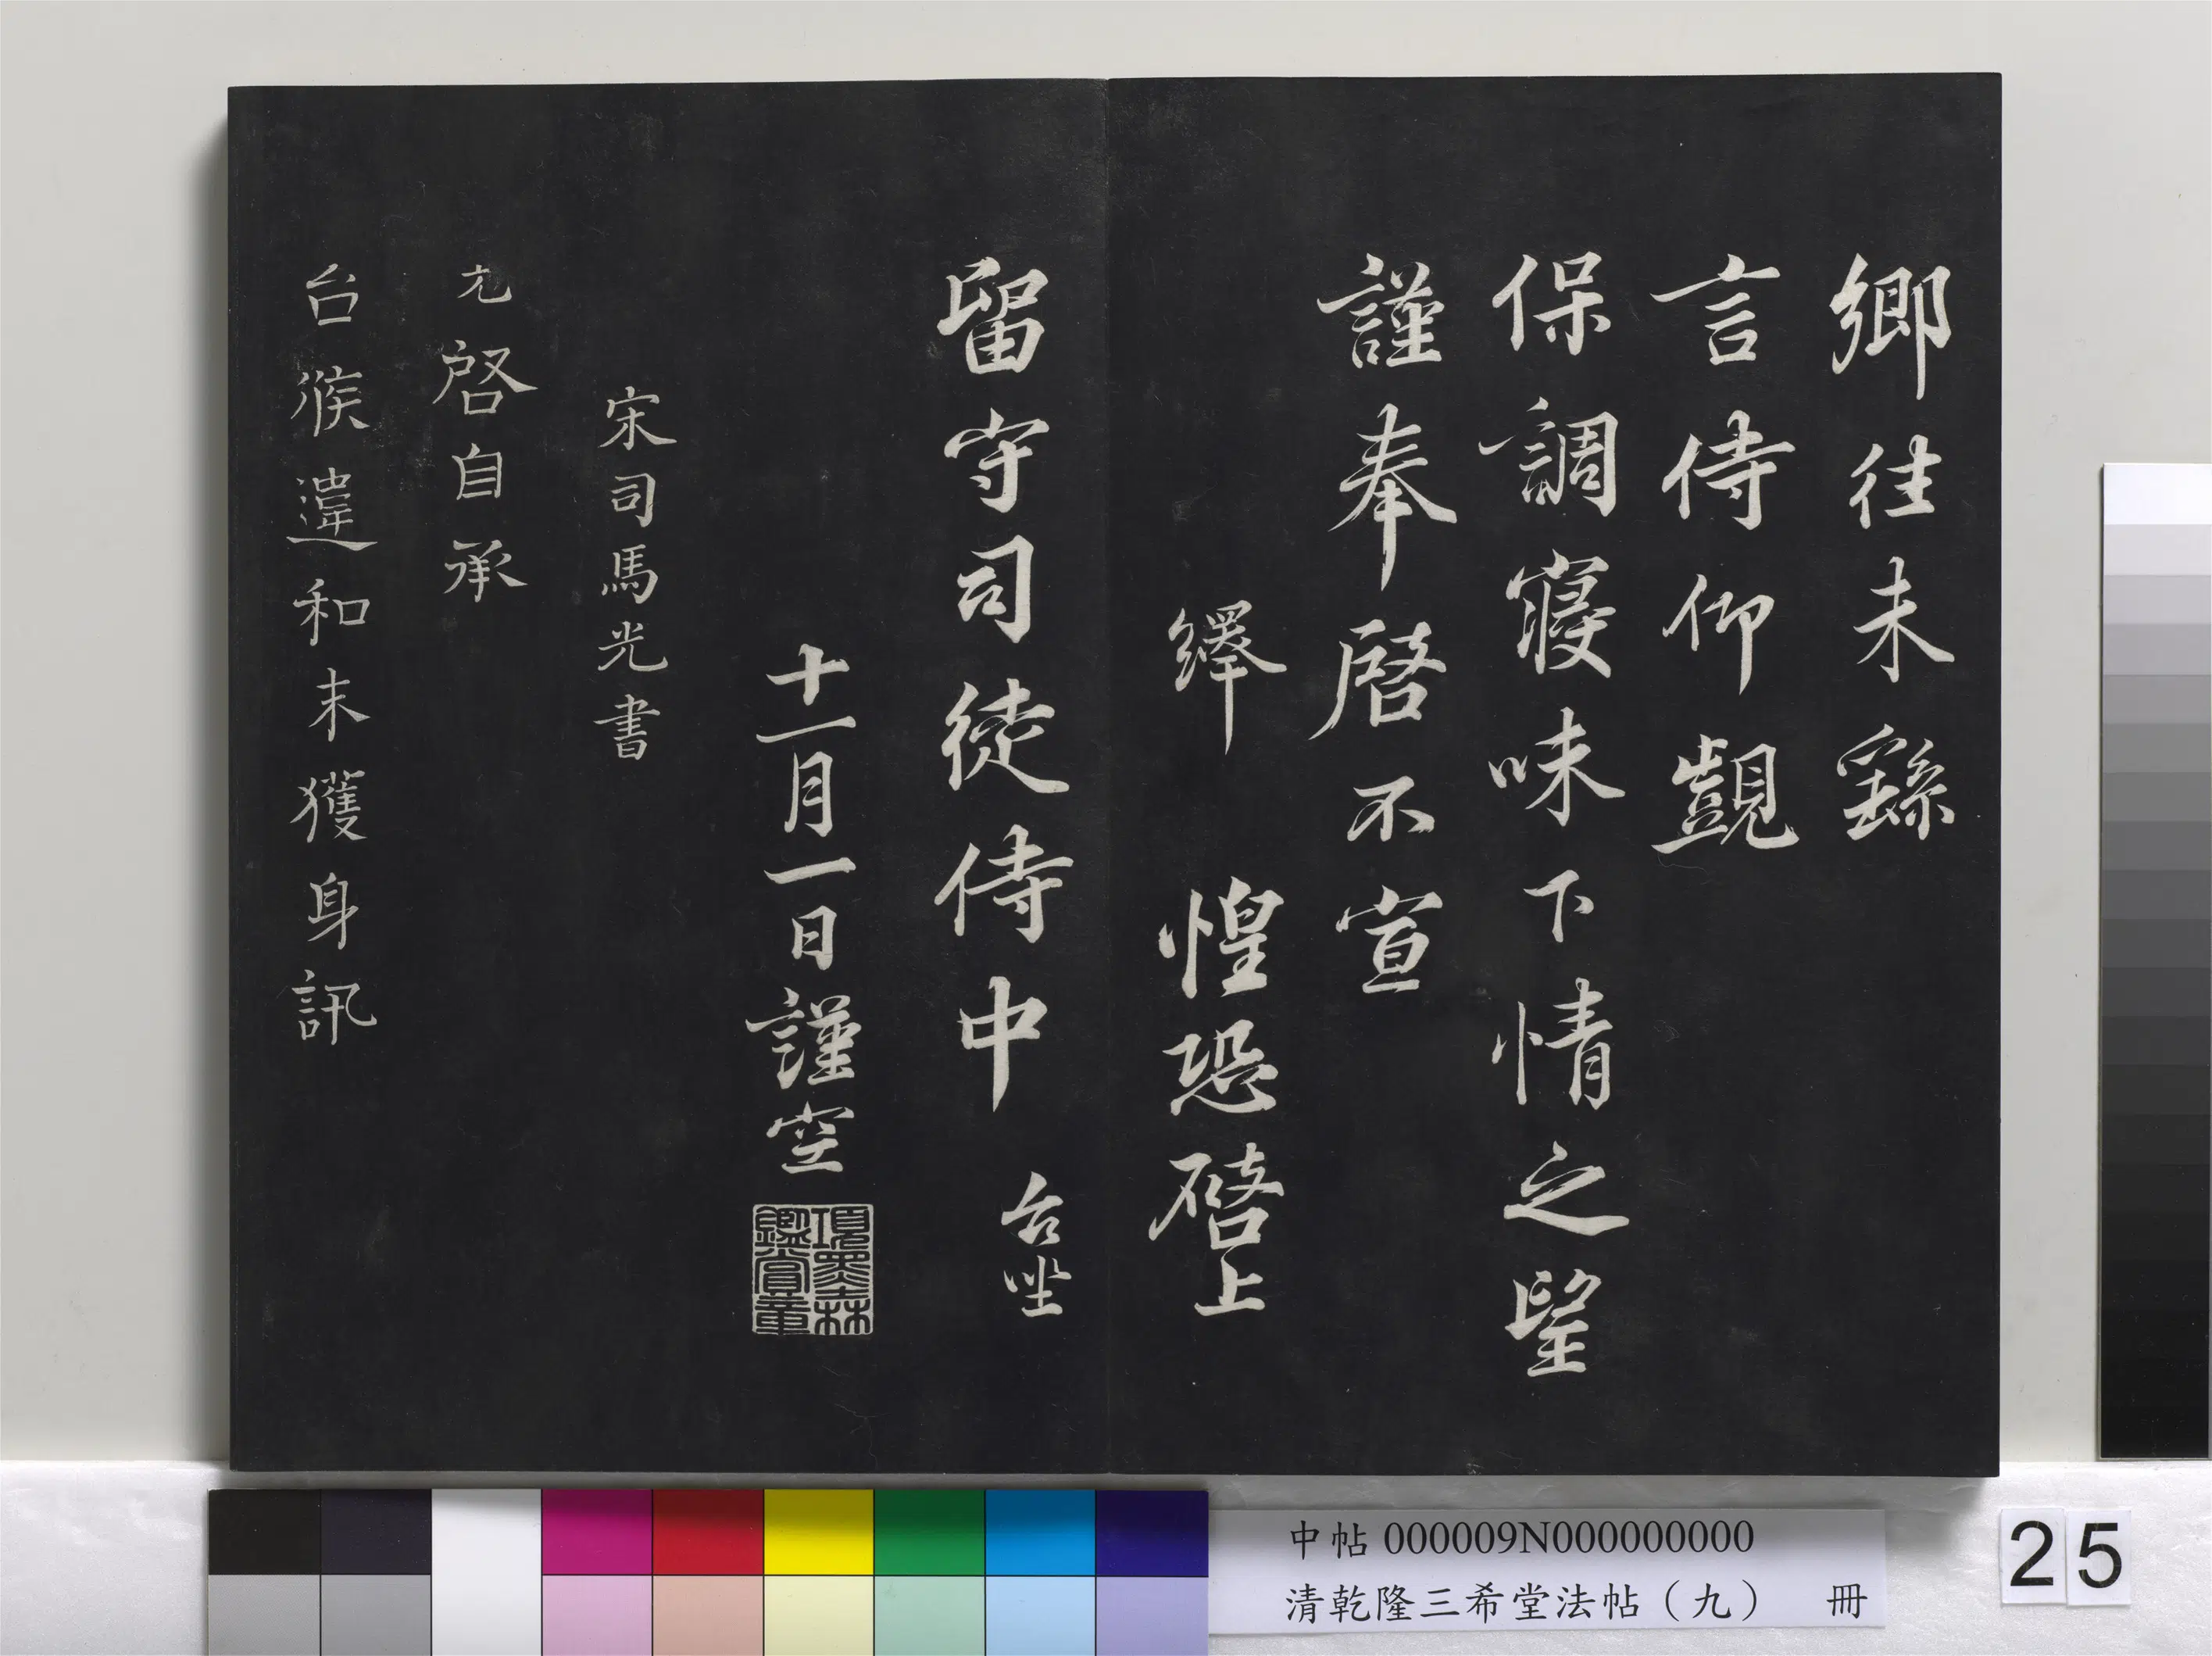 鄉往未繇
言侍仰覬
保調寢味下情之望
謹奉啓不宣
繹 惶恐啓上
留守司徒侍中 台坐
十一月一日謹空
項墨林鑑賞章
宋司馬光書
光啓自承
台候違和未獲身訊
中帖 000009N000000000
清乾隆三希堂法帖（九） 冊
25